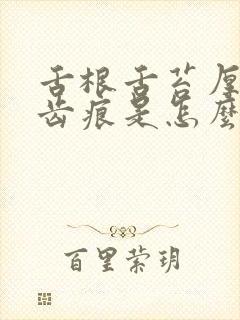 舌根舌苔厚
齿痕是怎麼
百里萦玥